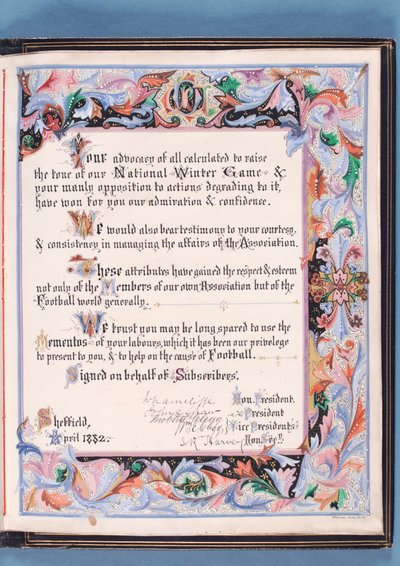 Your advocacy of all calculated to raise
the tone of our National Winter Game &
your manly opposition to actions degrading to it,
have won for you our admiration & confidence.
We would also bear testimony to your courtesy,
& consistency in managing the affairs of the Association.
These attributes have gained the respect & esteem
not only of the Members of our own Association but of the
Football world generally.
We trust you may be long spared to use the
Mementos of your labours, which it has been our privelege
to present to you, & to help on the cause of Football.
Signed on behalf of Subscribers.
Wharncliffe Hon. President.
President
Vice Presidents
Harvey Hon. Sec.
Sheffield,
April 1882.